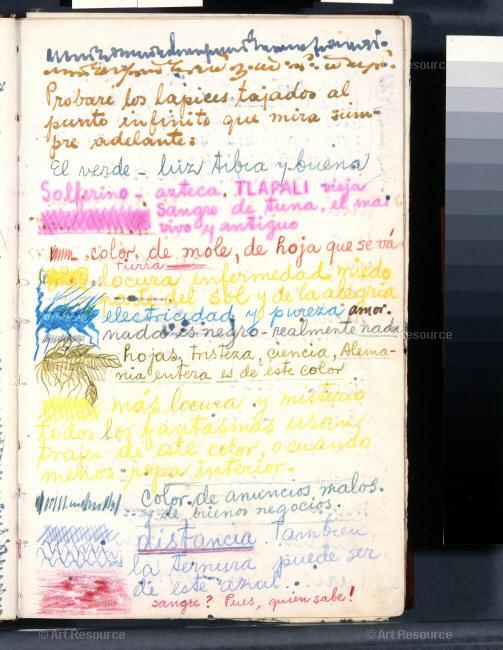 Probaré los lapices tajados al
punto infinito que mira siem-
pre adelante:
El verde – luz tibia y buena
Solferino – azteca. TLAPALI vieja
sangre de tuna, el mas
vivo y antiguo
color de mole, de hoja que se vá
tierra
locura enfermedad miedo
parte del sol y de la alegria
electricidad y pureza amor.
nada es negro – realmente nada
hojas, tristeza, ciencia, Alema-
nia entera es de este color
más locura y misterio
todos los fantasmas usan
trajes de este color, o cuando
menos ropa interior.
color de anuncios malos
y de buenos negocios.
distancia. Tambien
la ternura puede ser
de este azul
sangre? Pues, quien sabe!
© Art Resource
© Art Resource
© Art Resource
© Art Resource